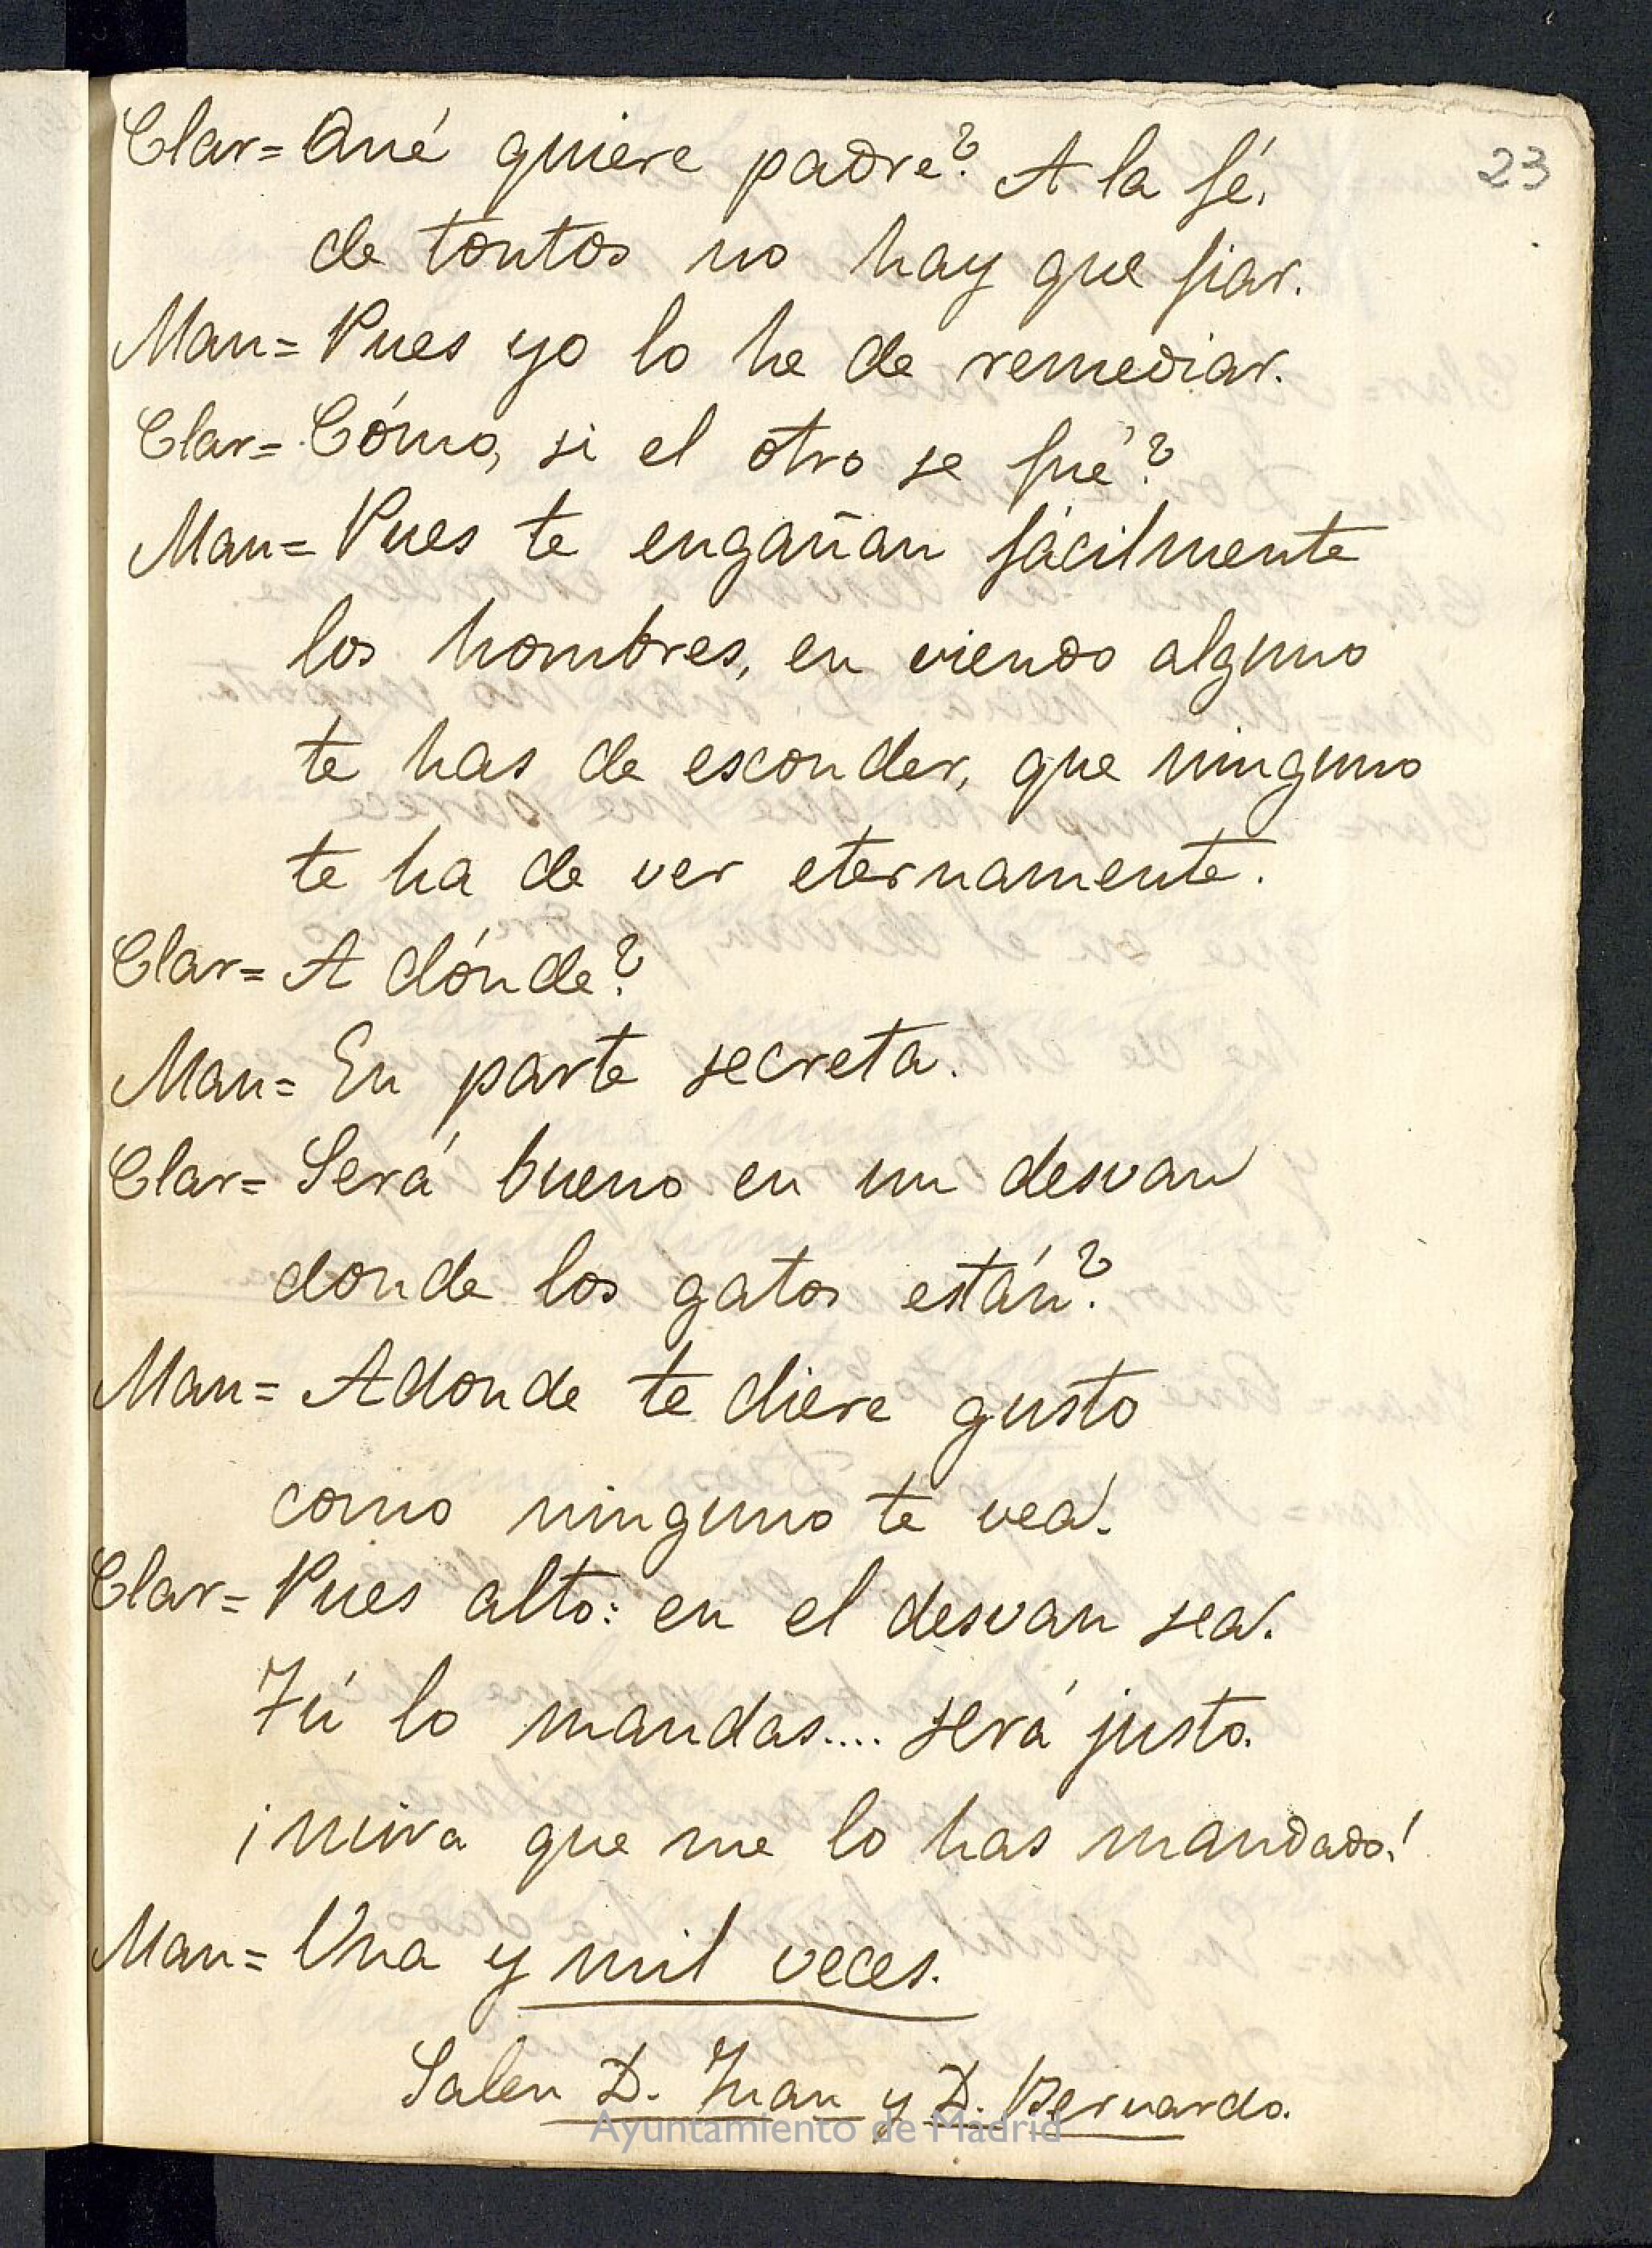 23
Clar= Qué quiere padre? A la fé,
de tontos no hay que fiar.
Man= Pues yo lo he de remediar.
Clar= Cómo, si el otro se fué?
Man= Pues te engañan fácilmente
los hombres, en viendo alguno
te has de esconder, que ninguno
te ha de ver eternamente.
Clar= A dónde?
Man= En parte secreta.
Clar= Será bueno en un desvan
donde los gatos están?
Man= Adonde te diere gusto
como ninguno te vea.
Clar= Pues alto: en el desvan sea.
Tú lo mandas.... será justo.
¡mira que me lo has mandado!
Man= Una y mil veces.
Salen D. Juan y D. Bernardo.
Ayuntamiento de Madrid